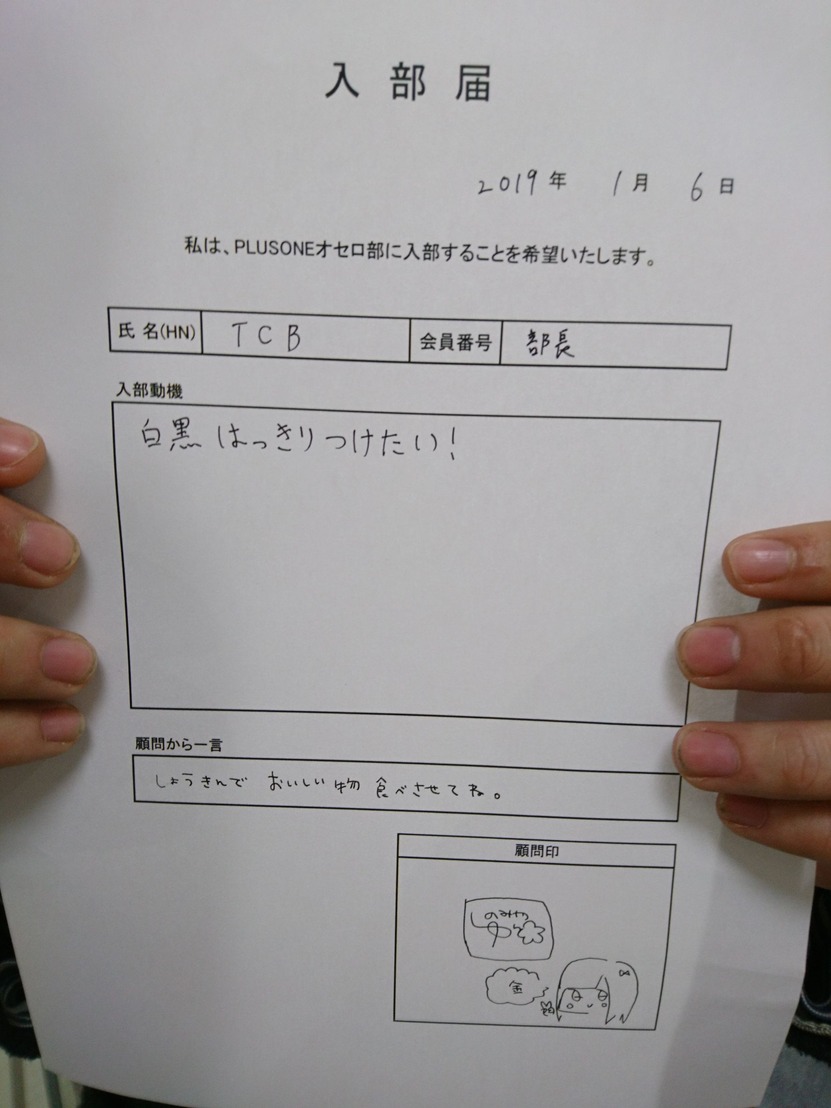 入部届
2019年 1月 6日
私は、PLUSONEオセロ部に入部することを希望いたします。
氏 名(HN) TCB 会員番号 部長
入部動機
白黒はっきりつけたい!
顧問から一言
しょうきんで おいしい物 食べさせてね。
顧問印
金